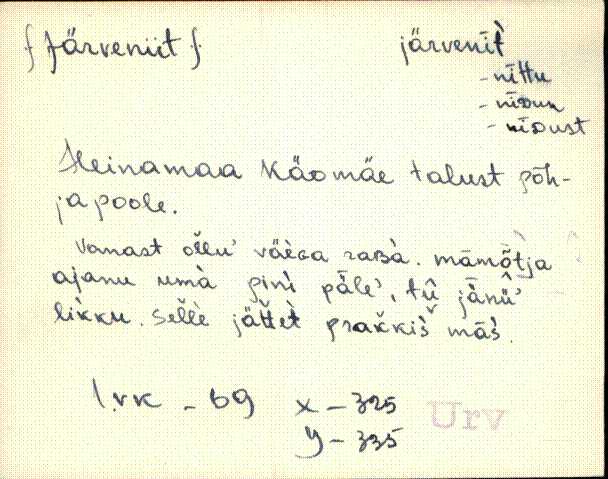 {Järveniit} järvenīt̀
- nīttu
- nīᴅun
- nīᴅust
Heinamaa Käomäe talust põh-
japoole.
Vanast ollu' väèga raʙà. māmõ̂t̀ja
ajanu umà pinì päle', tû jänü̂'
likku. sellè jättèt prakkis̀ mās̀.
I.vk - 69 x - 325
y - 335
Urv